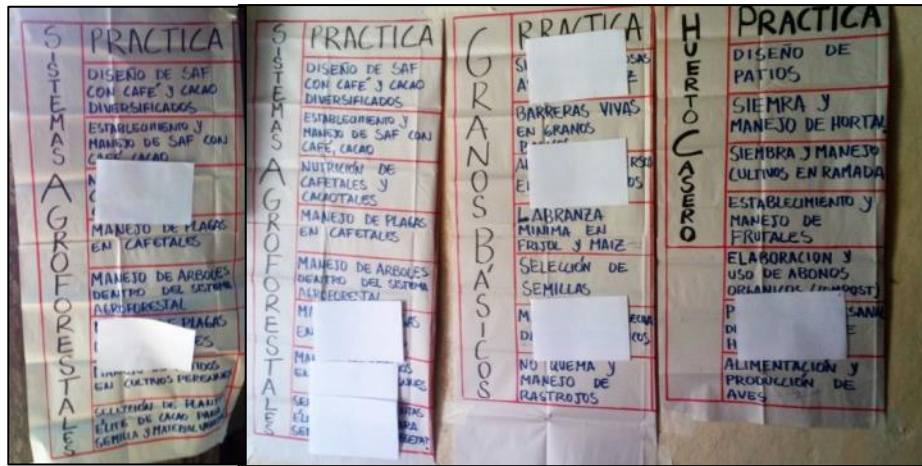 SISTEMAS AGROFORESTALES
PRACTICA
DISEÑO DE SAF
CON CAFÉ Y CACAO
DIVERSIFICADOS
ESTABLECIMIENTO Y
MANEJO DE SAF CON
CAFÉ, CACAO
MANEJO DE PLAGAS
EN CAFETALES
MANEJO DE ARBOLES
DENTRO DEL SISTEMA
AGROFORESTAL
DE PLAGAS
EN CULTIVOS PERENNES
SELECCIÓN DE PLANT
ÉLITE DE CACAO PARA
SEMILLA Y MATERIAL
SISTEMAS AGROFORESTALES
PRACTICA
DISEÑO DE SAF
CON CAFÉ Y CACAO
DIVERSIFICADOS
ESTABLECIMIENTO Y
MANEJO DE SAF CON
CAFÉ, CACAO
NUTRICIÓN DE
CAFETALES Y
CACAOTALES
MANEJO DE PLAGAS
EN CAFETALES
MANEJO DE ARBOLES
DENTRO DEL SISTEMA
AGROFORESTAL
GRANOS BÁSICOS
PRACTICA
BARRERAS VIVAS
EN GRANOS
LABRANZA
MINIMA EN
FRIJOL Y MAIZ
SELECCIÓN DE
SEMILLAS
NO QUEMA Y
MANEJO DE
RASTROJOS
HUERTO CASERO
PRACTICA
DISEÑO DE
PATIOS
SIEMRA Y
MANEJO DE HORTAL
SIEMBRA Y MANEJO
CULTIVOS EN RAMADA
ESTABLECIMIENTO Y
MANEJO DE
FRUTALES
ELABORACION Y
USO DE ABONOS
ORGANICOS (COMPOST)
ALIMENTACIÓN Y
PRODUCCIÓN DE
AVES